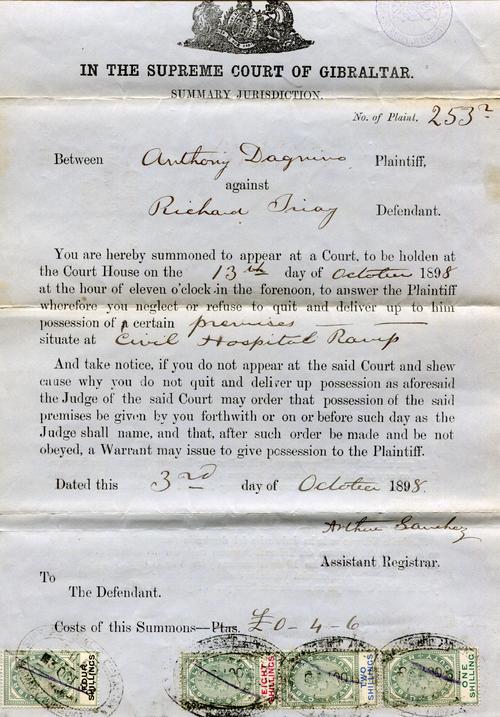 IN THE SUPREME COURT OF GIBRALTAR.
SUMMARY JURISDICTION.
No. of Plaint. 253
Between Anthony Dagnino Plaintiff,
against
Richard Triay Defendant.
You are hereby summoned to appear at a Court, to be holden at
the Court House on the 13th day of October 1898
at the hour of eleven o'clock in the forenoon, to answer the Plaintiff
wherefore you neglect or refuse to quit and deliver up to him
possession of a certain premises
situate at Civil Hospital Ramp
And take notice, if you do not appear at the said Court and shew
cause why you do not quit and deliver up possession as aforesaid
the Judge of the said Court may order that possession of the said
premises be given by you forthwith or on or before such day as the
Judge shall name, and that, after such order be made and be not
obeyed, a Warrant may issue to give possession to the Plaintiff.
Dated this 3rd day of October 1898.
Arthur Sanchez
Assistant Registrar.
To
The Defendant.
Costs of this Summons—Ptas. £0-4-6
FOUR SHILLINGS
EIGHT SHILLINGS
TWO SHILLINGS
ONE SHILLING